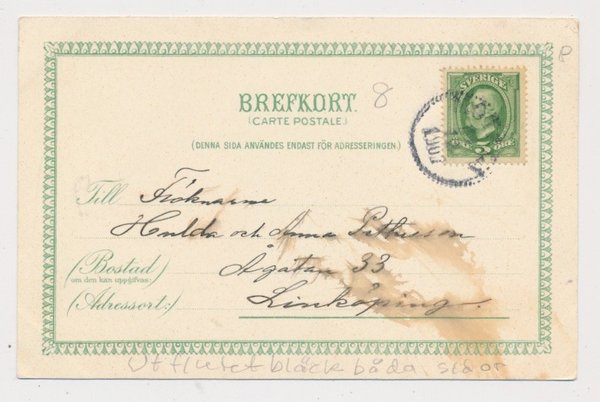 BREFKORT. 8
(CARTE POSTALE.)
(DENNA SIDA ANVÄNDES ENDAST FÖR ADRESSERINGEN.)
SVERIGE
5 ÖRE
1907
Till Fröknarna
Hulda och Anna
(Bostad) Ågatan 33
om den kan uppgifvas:
(Adressort:) Linköping.
Utflutet bläck båda sidor